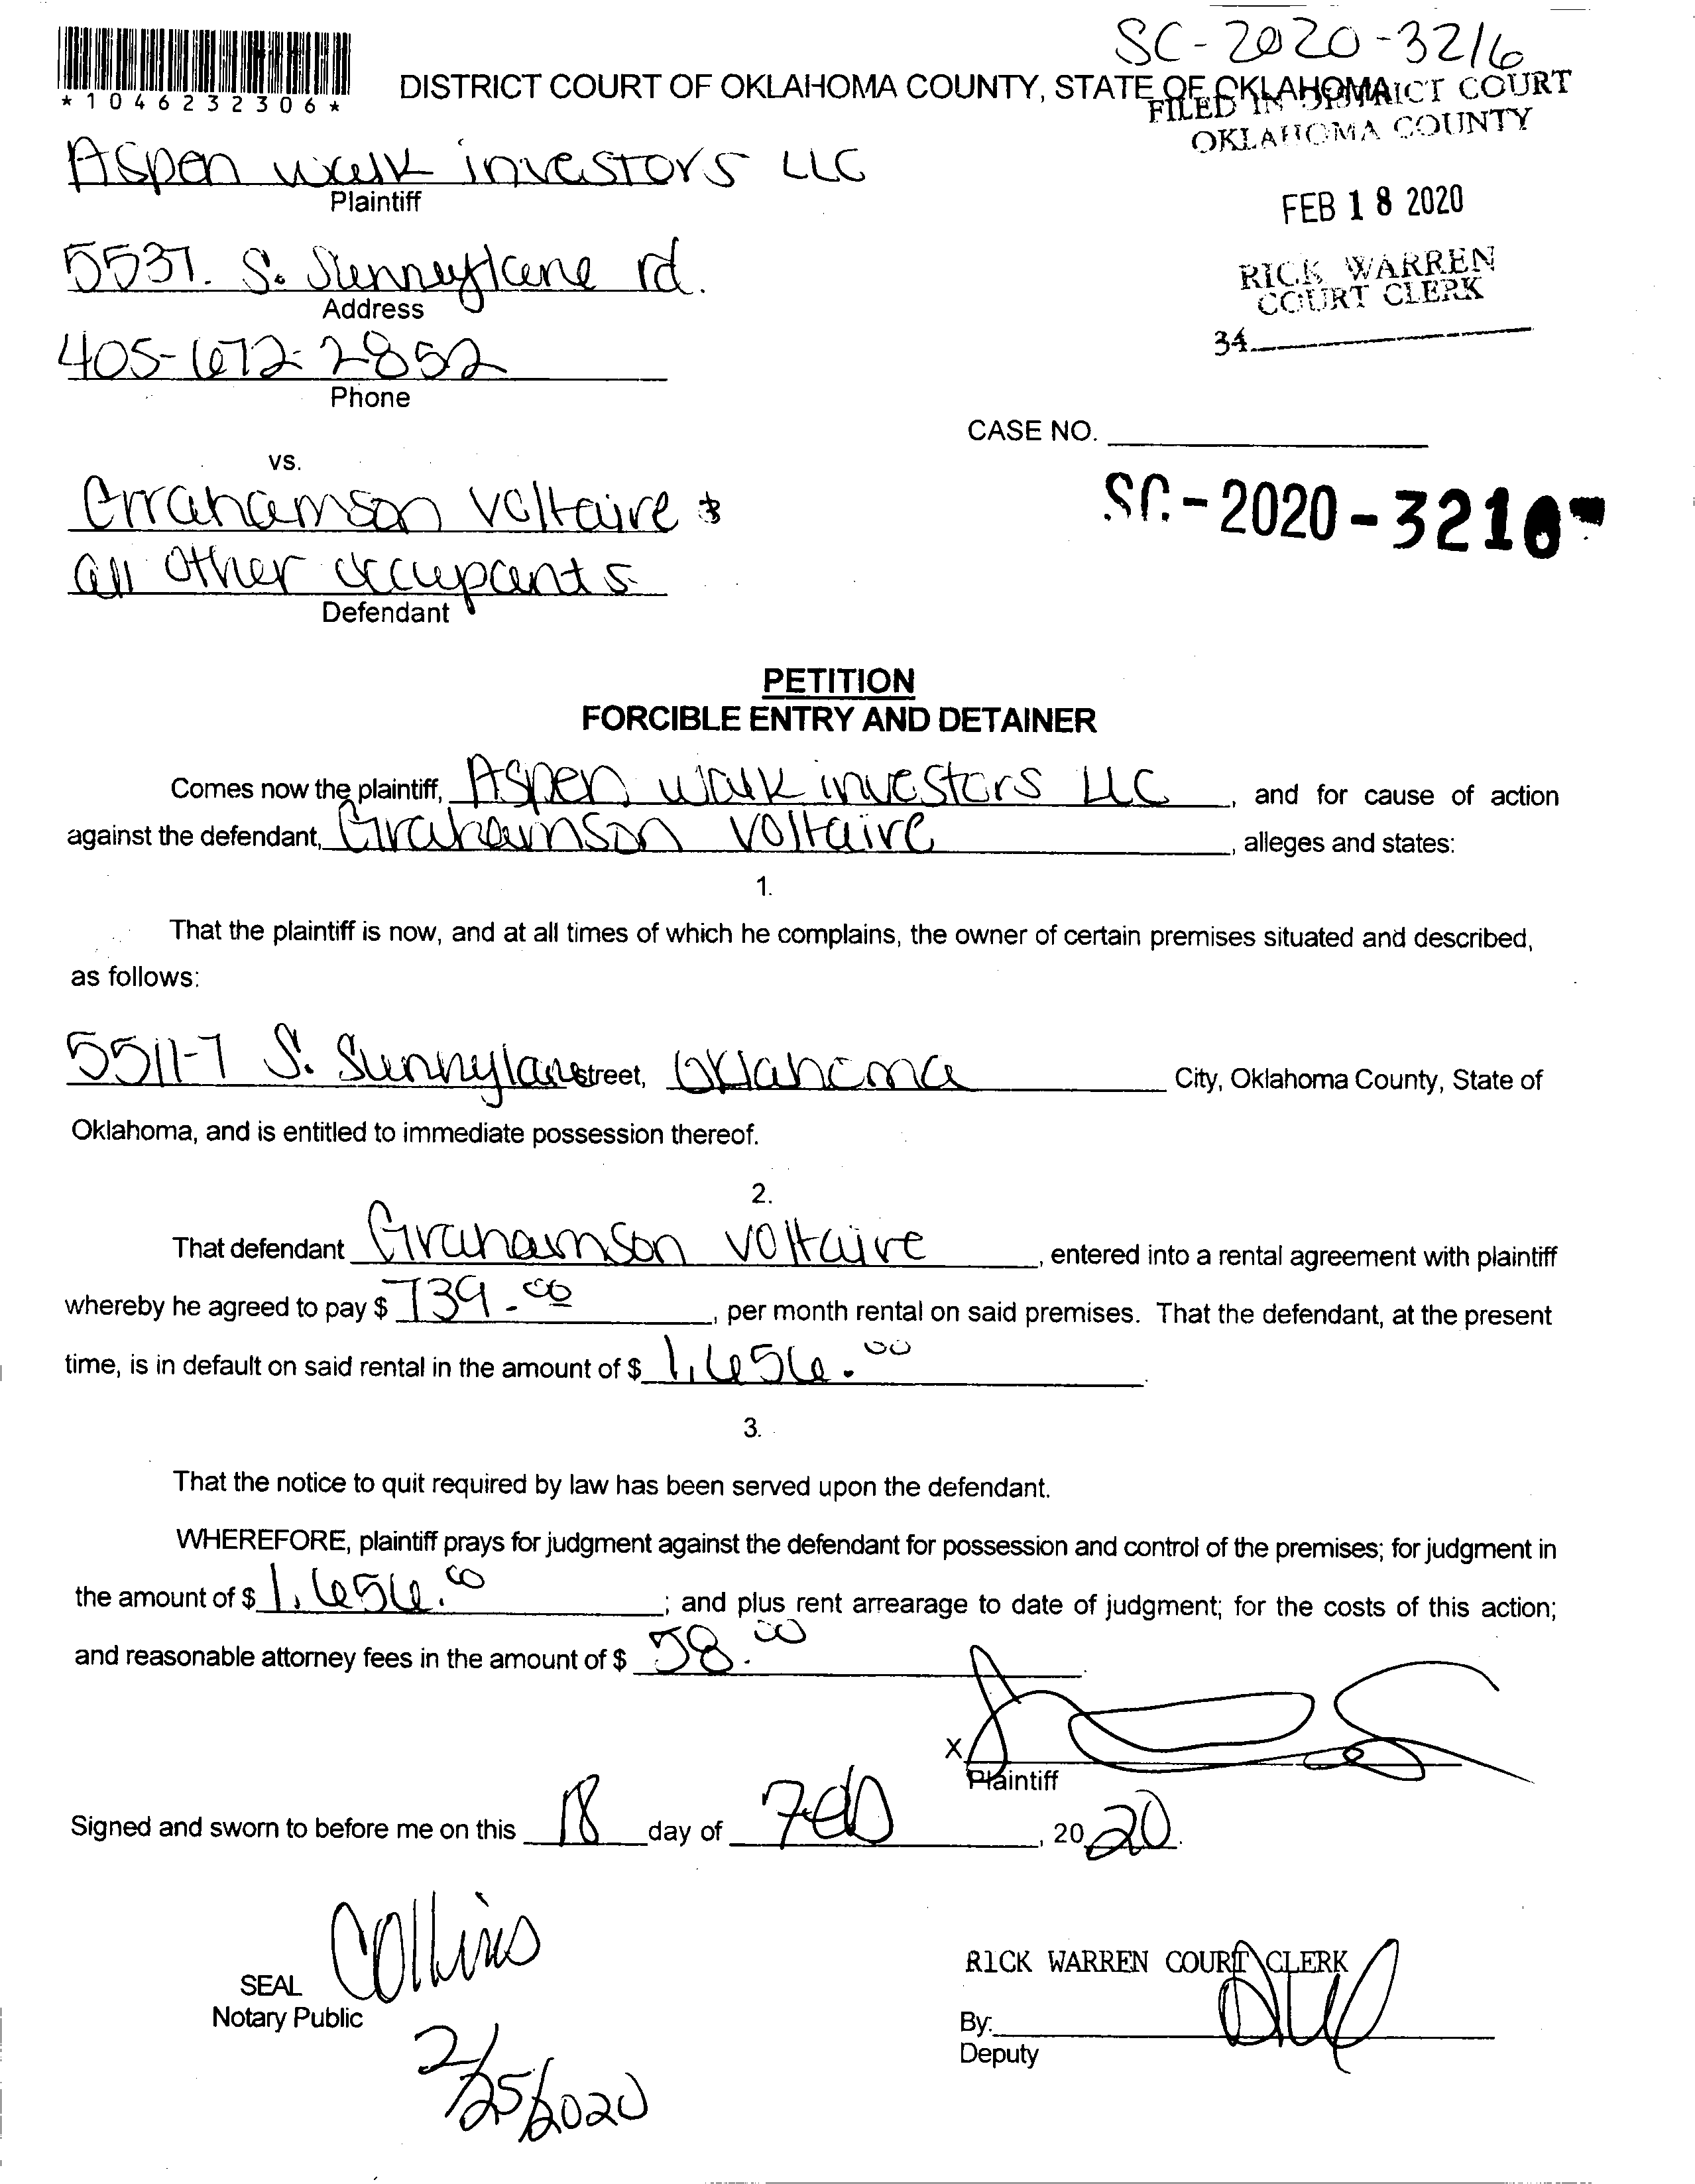 SC-2020-3216
*1046232306*
DISTRICT COURT OF OKLAHOMA COUNTY, STATE OF OKLAHOMA
FILED IN DISTRICT COURT
OKLAHOMA COUNTY
Aspen walk investors LLC
Plaintiff
FEB 18 2020
5537. S. Sunnylane rd.
Address
RICK WARREN
COURT CLERK
34
405-672-2852
Phone
CASE NO.
vs.
Grahamson Voltaire &
SC-2020-3216
all other occupants
Defendant
PETITION
FORCIBLE ENTRY AND DETAINER
Comes now the plaintiff, Aspen walk investors LLC, and for cause of action
against the defendant, Grahamson Voltaire, alleges and states:
1.
That the plaintiff is now, and at all times of which he complains, the owner of certain premises situated and described,
as follows:
5511-7 S. Sunnylane street, Oklahoma City, Oklahoma County, State of
Oklahoma, and is entitled to immediate possession thereof.
2.
That defendant Grahamson Voltaire, entered into a rental agreement with plaintiff
whereby he agreed to pay $ 739.00, per month rental on said premises. That the defendant, at the present
time, is in default on said rental in the amount of $ 1,656.00.
3.
That the notice to quit required by law has been served upon the defendant.
WHEREFORE, plaintiff prays for judgment against the defendant for possession and control of the premises; for judgment in
the amount of $ 1,656.00; and plus rent arrearage to date of judgment; for the costs of this action;
and reasonable attorney fees in the amount of $ 58.00.
X
Plaintiff
Signed and sworn to before me on this 18 day of Feb, 2020.
Collins
SEAL
Notary Public
RICK WARREN COURT CLERK
By:
Deputy
2/25/2020